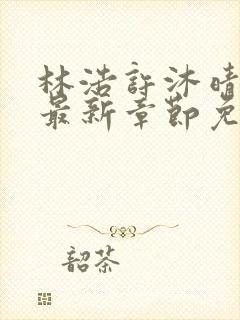 林浩許沐晴
最新章節免
韶茶